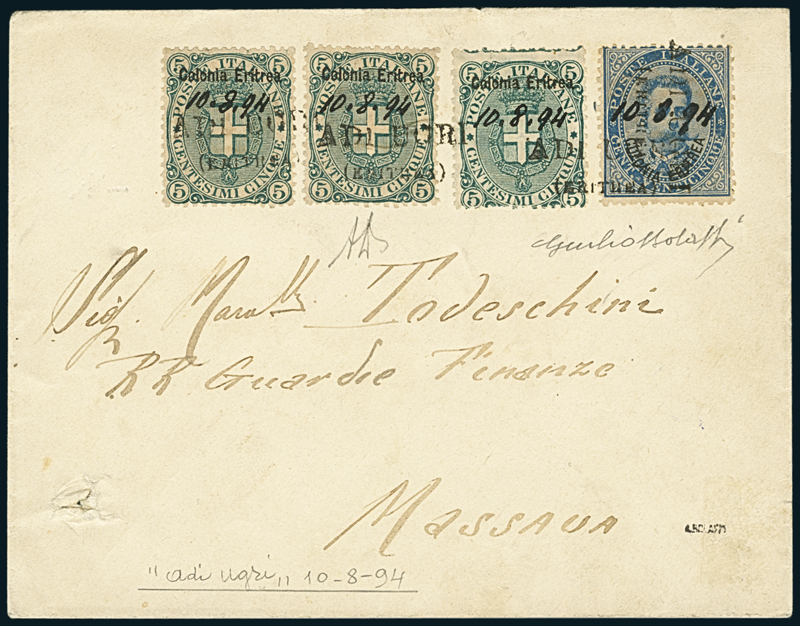 POSTE ITALIANE POSTE ITALIANE POSTE ITALIANE POSTE ITALIANE
5 5 5 5 5 5
Colonia Eritrea Colonia Eritrea Colonia Eritrea
10-8-94 10-8-94 10.8.94 10.8.94
ADI UGRI ADI UGRI ADI
(ERITREA) (ERITREA) (ERITREA)
COLONIA ERITREA
CENTESIMI CINQUE CENTESIMI CINQUE CENTESIMI CINQUE
5 5 5 5 5 5
Sig. Mar.llo Todeschini
RR Guardie Finanze
Massaua
"Adi Ugri" 10-8-94